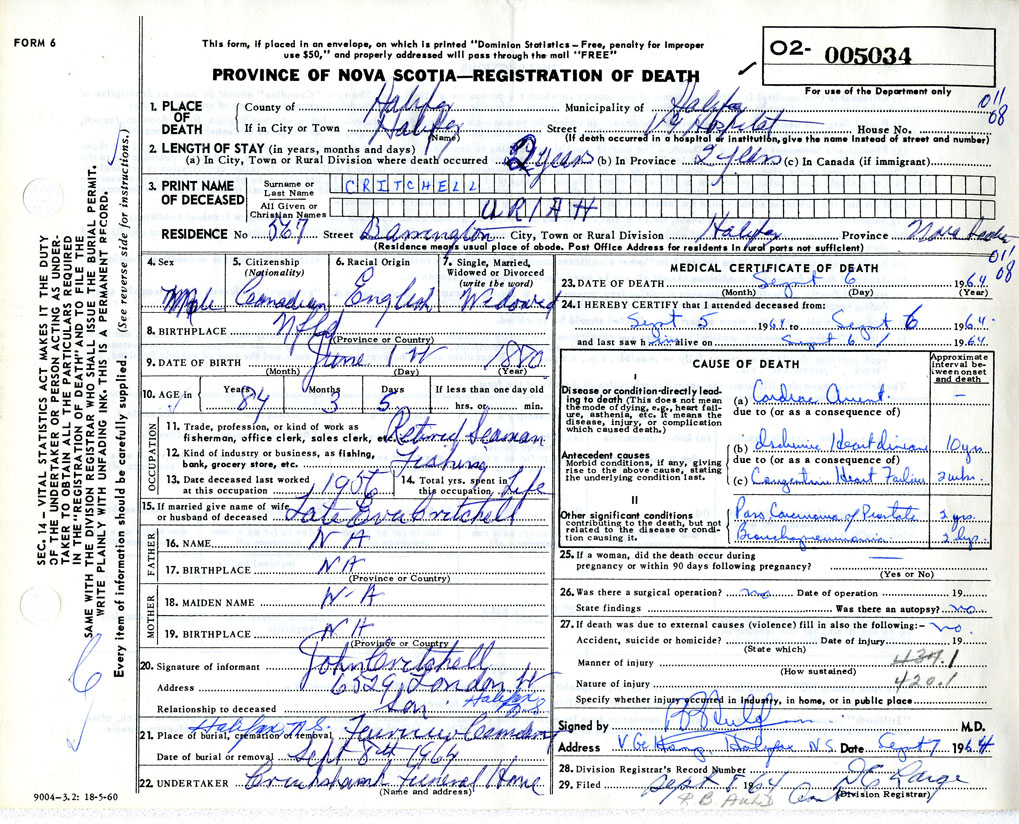 FORM 6
This form, if placed in an envelope, on which is printed "Dominion Statistics – Free, penalty for improper
use $50," and properly addressed will pass through the mail "FREE"
O2- 005034
PROVINCE OF NOVA SCOTIA—REGISTRATION OF DEATH
For use of the Department only
011
08
1. PLACE OF DEATH
County of Halifax Municipality of Halifax
If in City or Town Halifax Street V G Hospital House No.
(Name) (If death occurred in a hospital or institution, give the name instead of street and number)
2. LENGTH OF STAY (in years, months and days)
(a) In City, Town or Rural Division where death occurred 2 years (b) In Province 2 years (c) In Canada (if immigrant)
3. PRINT NAME OF DECEASED
Surname or Last Name CRITCHELL
All Given or Christian Names URIAH
RESIDENCE No 567 Street Barrington City, Town or Rural Division Halifax Province Nova Scotia
(Residence means usual place of abode. Post Office Address for residents in rural parts not sufficient)
011
08
4. Sex Male
5. Citizenship (Nationality) Canadian
6. Racial Origin English
7. Single, Married, Widowed or Divorced (write the word) Widowed
8. BIRTHPLACE Nfld
(Province or Country)
9. DATE OF BIRTH June 1 1880
(Month) (Day) (Year)
10. AGE in Years 84 Months 3 Days 5 If less than one day old hrs. or min.
OCCUPATION
11. Trade, profession, or kind of work as fisherman, office clerk, sales clerk, etc. Retired Seaman
12. Kind of industry or business, as fishing, bank, grocery store, etc. Fishing
13. Date deceased last worked at this occupation 1956
14. Total yrs. spent in this occupation Life
15. If married give name of wife or husband of deceased Late Eva Critchell
FATHER
16. NAME N A
17. BIRTHPLACE N A
(Province or Country)
MOTHER
18. MAIDEN NAME N-A
19. BIRTHPLACE N A
(Province or Country)
20. Signature of informant John Critchell
Address 6329 London St Halifax N.S.
Relationship to deceased son
21. Place of burial, cremation or removal Halifax, N.S. Fairview Cemetery
Date of burial or removal Sept 8th 1964
22. UNDERTAKER Cruikshank Funeral Home
(Name and address)
9004-3.2: 18-5-60
MEDICAL CERTIFICATE OF DEATH
23. DATE OF DEATH Sept 6 1964
(Month) (Day) (Year)
24. I HEREBY CERTIFY that I attended deceased from:
Sept 5 1964 to Sept 6 1964
and last saw him alive on Sept 6 1964
CAUSE OF DEATH
Approximate interval between onset and death
I
Disease or condition directly leading to death (This does not mean the mode of dying, e.g., heart failure, asthenia, etc. It means the disease, injury, or complication which caused death.)
(a) Cardiac Arrest —
due to (or as a consequence of)
Antecedent causes
Morbid conditions, if any, giving rise to the above cause, stating the underlying condition last.
(b) Ischemic Heart disease 10 yrs.
due to (or as a consequence of)
(c) Congestive Heart Failure 2 wks.
II
Other significant conditions contributing to the death, but not related to the disease or condition causing it.
Carcinoma of Prostate 2 yrs.
Bronchopneumonia
25. If a woman, did the death occur during
pregnancy or within 90 days following pregnancy?
(Yes or No)
26. Was there a surgical operation? no Date of operation 19
State findings Was there an autopsy? no
27. If death was due to external causes (violence) fill in also the following:- no.
Accident, suicide or homicide? Date of injury 19
(State which)
Manner of injury
(How sustained)
Nature of injury 420.1
Specify whether injury occurred in Industry, in home, or in public place
Signed by M.D.
Address V.G. Hosp, Halifax N.S. Date Sept 7 1964
28. Division Registrar's Record Number
29. Filed Sept 8 1964
(Division Registrar)
SEC. 14—VITAL STATISTICS ACT MAKES IT THE DUTY
OF THE UNDERTAKER OR PERSON ACTING AS UNDER-
TAKER TO OBTAIN ALL THE PARTICULARS REQUIRED
IN THE "REGISTRATION OF DEATH" AND TO FILE THE
SAME WITH THE DIVISION REGISTRAR WHO SHALL ISSUE THE BURIAL PERMIT.
WRITE PLAINLY WITH UNFADING INK. THIS IS A PERMANENT RECORD.
Every item of information should be carefully supplied. (See reverse side for instructions.)